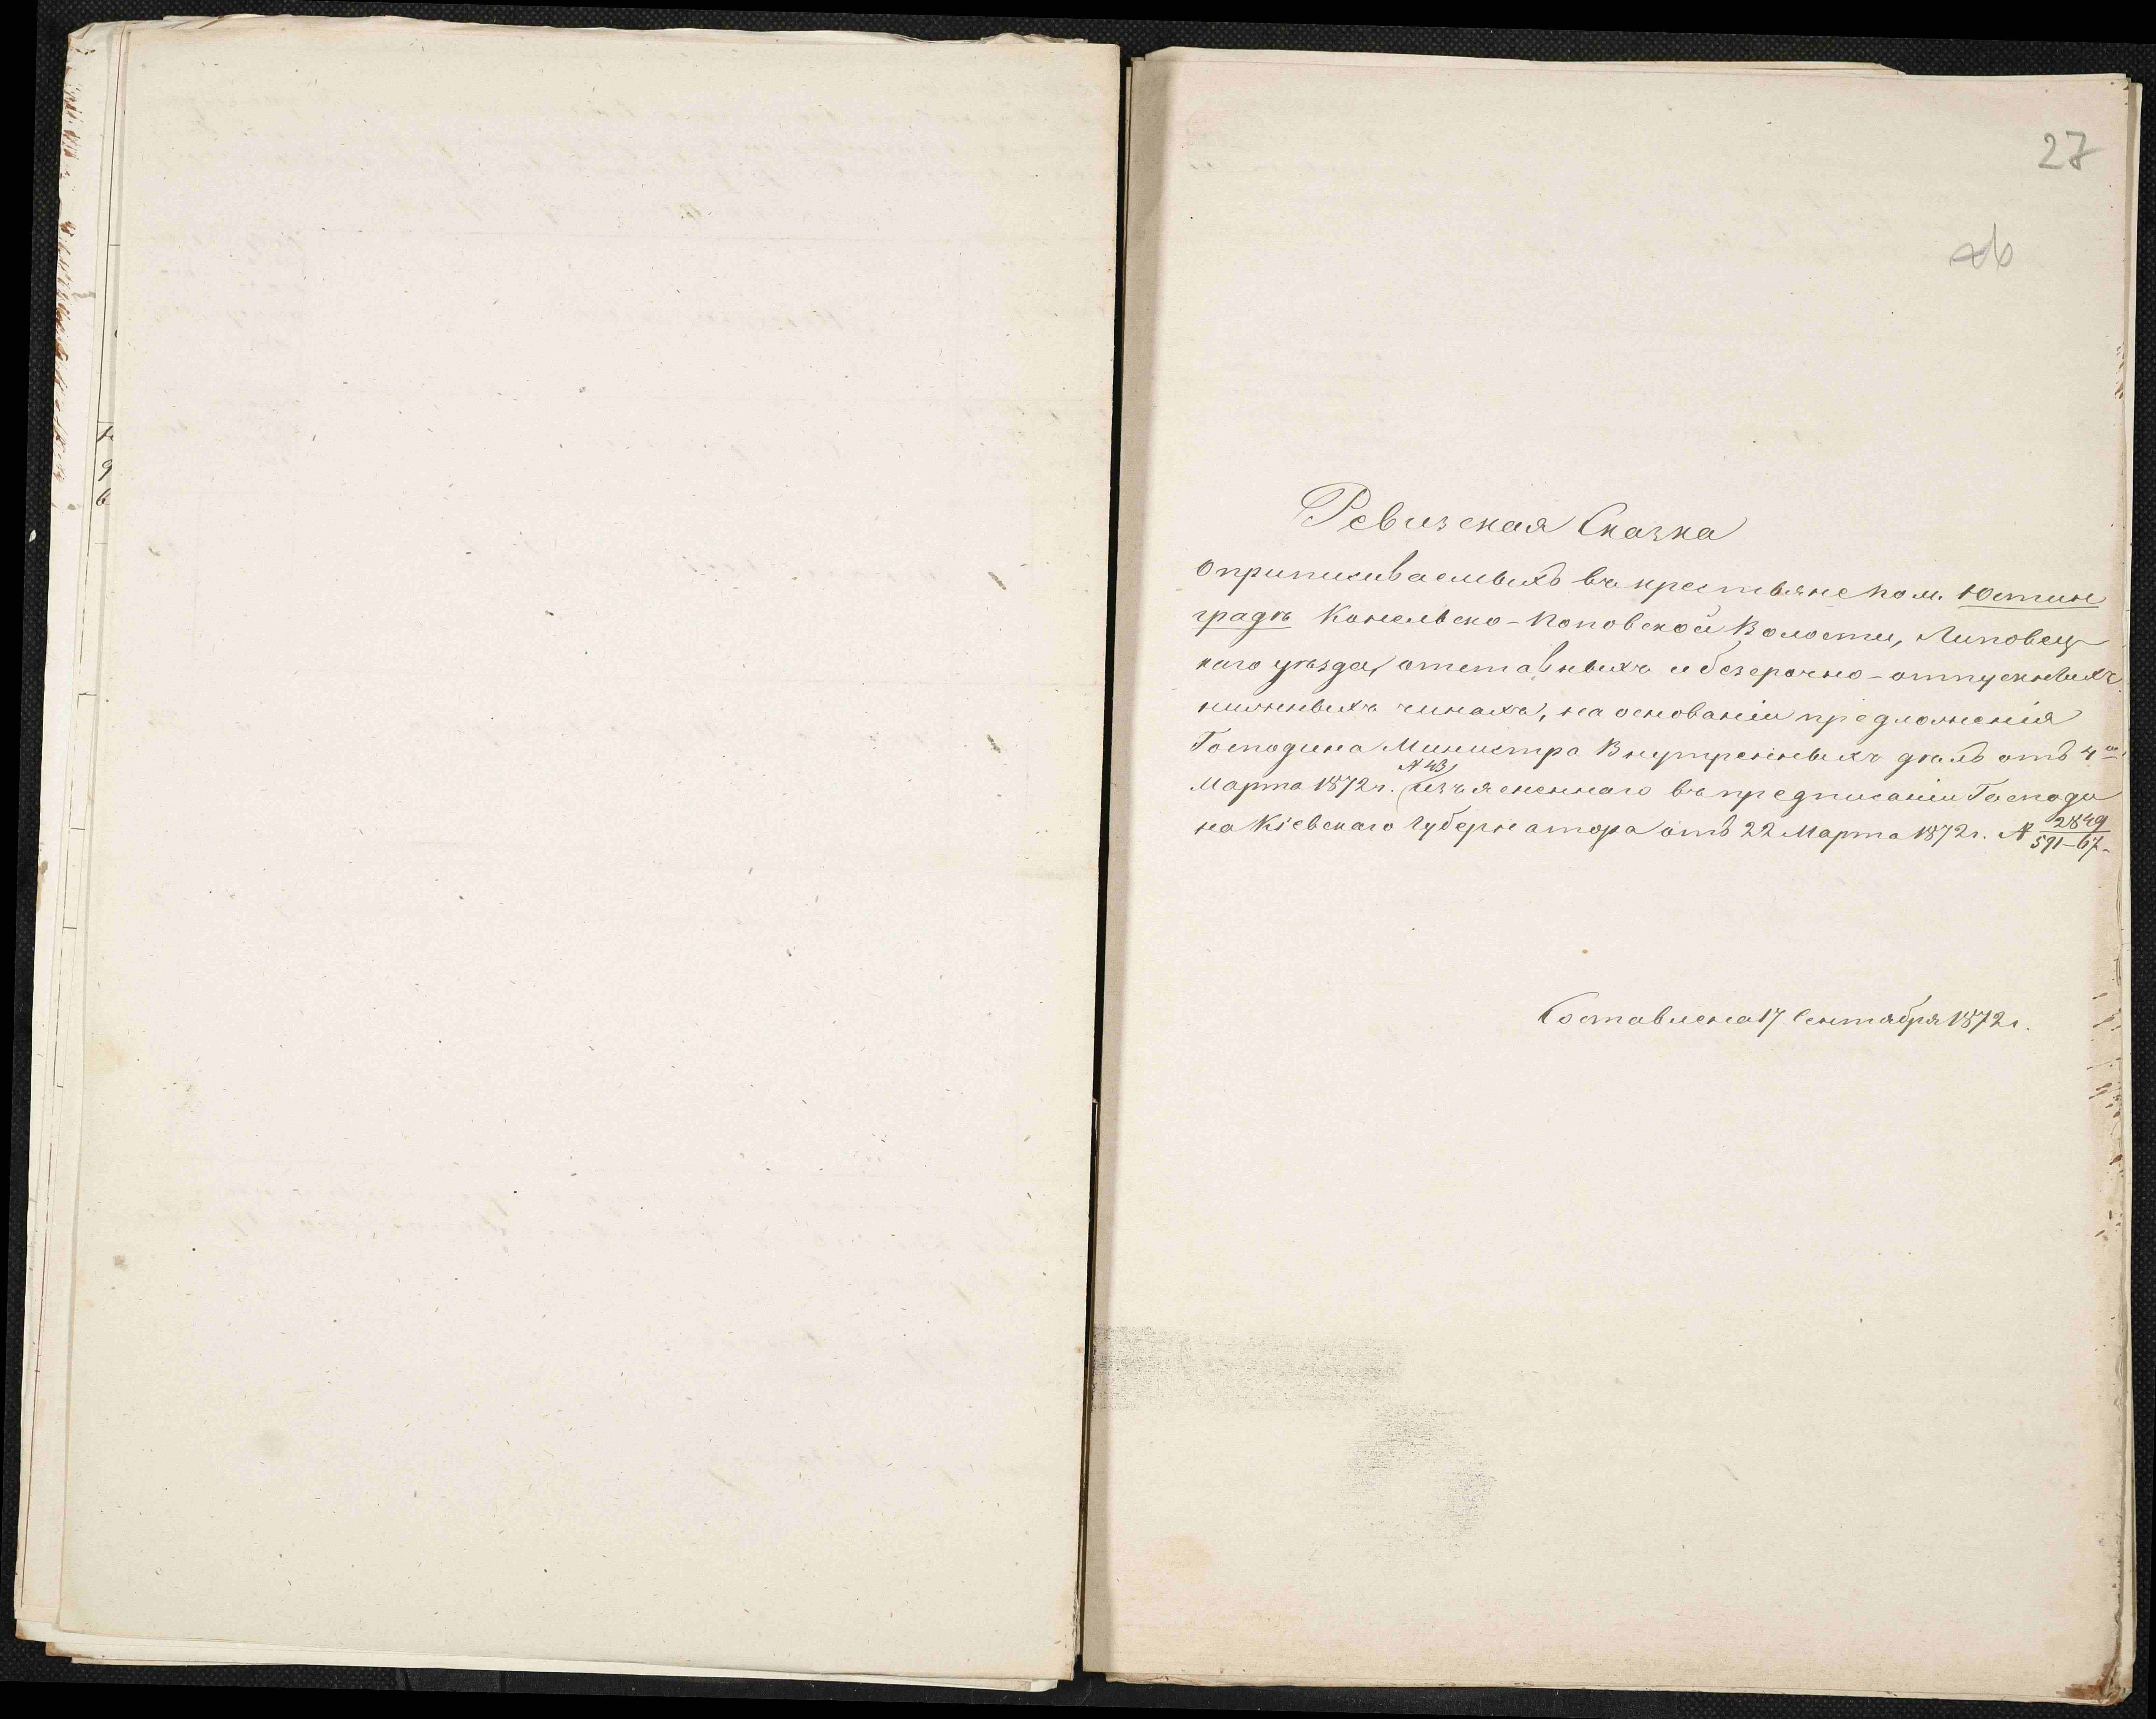 27
Ревизская Сказка
о приписываемыхъ въ крестьяне пом. Юстин
градъ Конельско-Поповской Волости, Липовец
каго уѣзда, отставныхъ и безсрочно-отпускныхъ
нижныхъ чинахъ, на основаніи предложенія
Господина Министра Внутренныхъ дѣлъ отъ 4го
N 43,
Марта 1872 г. изъясненнаго въ предписаніи Господи
на Кіевскаго Губернатора отъ 22 Марта 1872 г. N 2849/591-67.
Составлена 17 Сентября 1872 г.